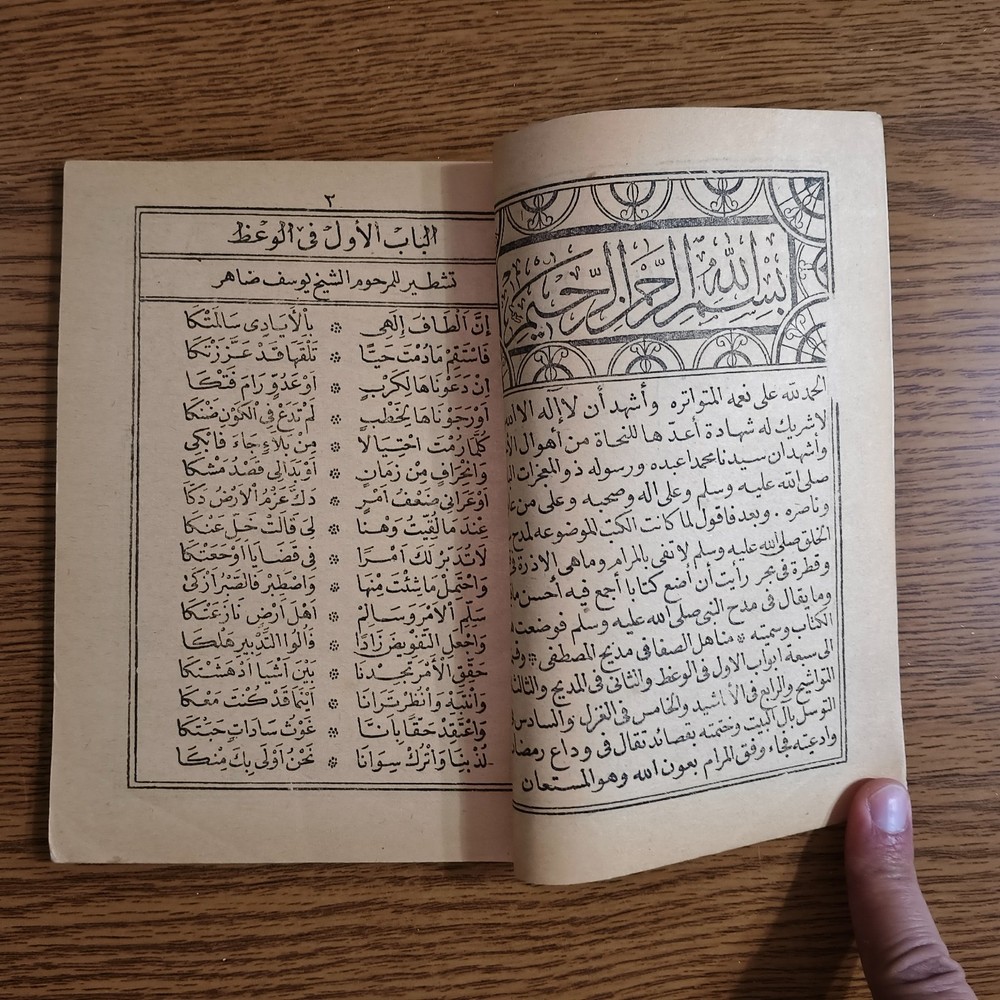 بسم الله الرحمن الرحيم
الحمد لله على نعمه المتواتره وأشهد أن لا إله الا الله
لا شريك له شهادة أعدها للنجاة من أهوال
وأشهد ان سيدنا محمدا عبده ورسوله ذو المعجزات
صلى الله عليه وسلم وعلى اله وصحبه وعلى من
وناصره . وبعد فاقول لما كانت الكتب الموضوعه لمدح
الخلق صلى الله عليه وسلم لا تفى بالمرام وما هى الا ذرة
وقطرة فى بحر رأيت أن أضع كتابا أجمع فيه أحسن
وما يقال فى مدح النبى صلى الله عليه وسلم فوضعت
الكتاب وسمته * مناهل الصفا فى مديح المصطفى *
الى سبعة ابواب الاول فى الوعظ والثانى فى المديح والثالث
التواشيح والرابع فى الأناشيد والخامس فى الغزل والسادس
التوسل بال البيت وختمته بقصائد تقال فى وداع
وادعيه فجاء وفق المرام بعون الله وهو المستعان
٢
الباب الأول فى الوعظ
تشطير للمرحوم الشيخ يوسف ضاهر
إنَّ الْطَافَ إلَهِى * بِالْأَيَادِى سَالَمَتْكَا
فَاسْتَقِمْ مَادُمْتَ حَيًّا * تَلْقَهَا قَدْ عَزَّزَتْكَا
اِنْ دَعَوْنَاهَا لِكَرْبٍ * اَوْ عَدُوٍّ رَامَ فَتْكَا
اَوْ رَجَوْنَاهَا لِخَطْبٍ * لَمْ تَدَعْ فِى الْكَوْنِ ضَنْكَا
كُلَّمَا رُمْتَ احْتِيَالَا * مِنْ بَلَاءٍ جَاءَ فَانْكَى
وَانْحِرَافٍ مِنْ زَمَانٍ * اَوْ بَدَا لِى قَصْدُ مَشْكَا
اَوْ عَرَانِى ضَعْفُ اَمْرٍ * دَكَّ عَزْمُ الْاَرْضِ دَكَّا
عِنْدَ مَا لَقِيتُ وَهْنًا * لِى قَالَتْ خَلِّ عَنْكَا
لَا تُدَبِّرْ لَكَ اَمْرًا * فِى قَضَايَا اَوْجَعَتْكَا
وَاحْتَمِلْ مَا شِئْتَ مِنْهَا * وَاصْطَبِرْ فَالصَّبْرُ اَزْكَى
سَلِّمِ الْاَمْرَ وَسَالِمْ * اَهْلَ اَرْضٍ نَازَعَتْكَا
وَاجْعَلِ التَّفْوِيضَ زَادًا * فَالُوا التَّدْبِيرِ هَلْكَا
حَقِّقِ الْأَمْرَ تَجِدْنَا * بَيْنَ اَشْيَا اَدْهَشَتْكَا
وَانْتَبِهْ وَانْظُرْ تَرَانَا * اَيْنَمَا قَدْ كُنْتَ مَعْكَا
وَاعْتَقِدْ حَقًّا بِاَنَّا * غَوْثُ سَادَاتٍ حَبَتْكَا
لُذْ بِنَا وَاتْرُكْ سِوَانَا * نَحْنُ اَوْلَى بِكَ مِنْكَا